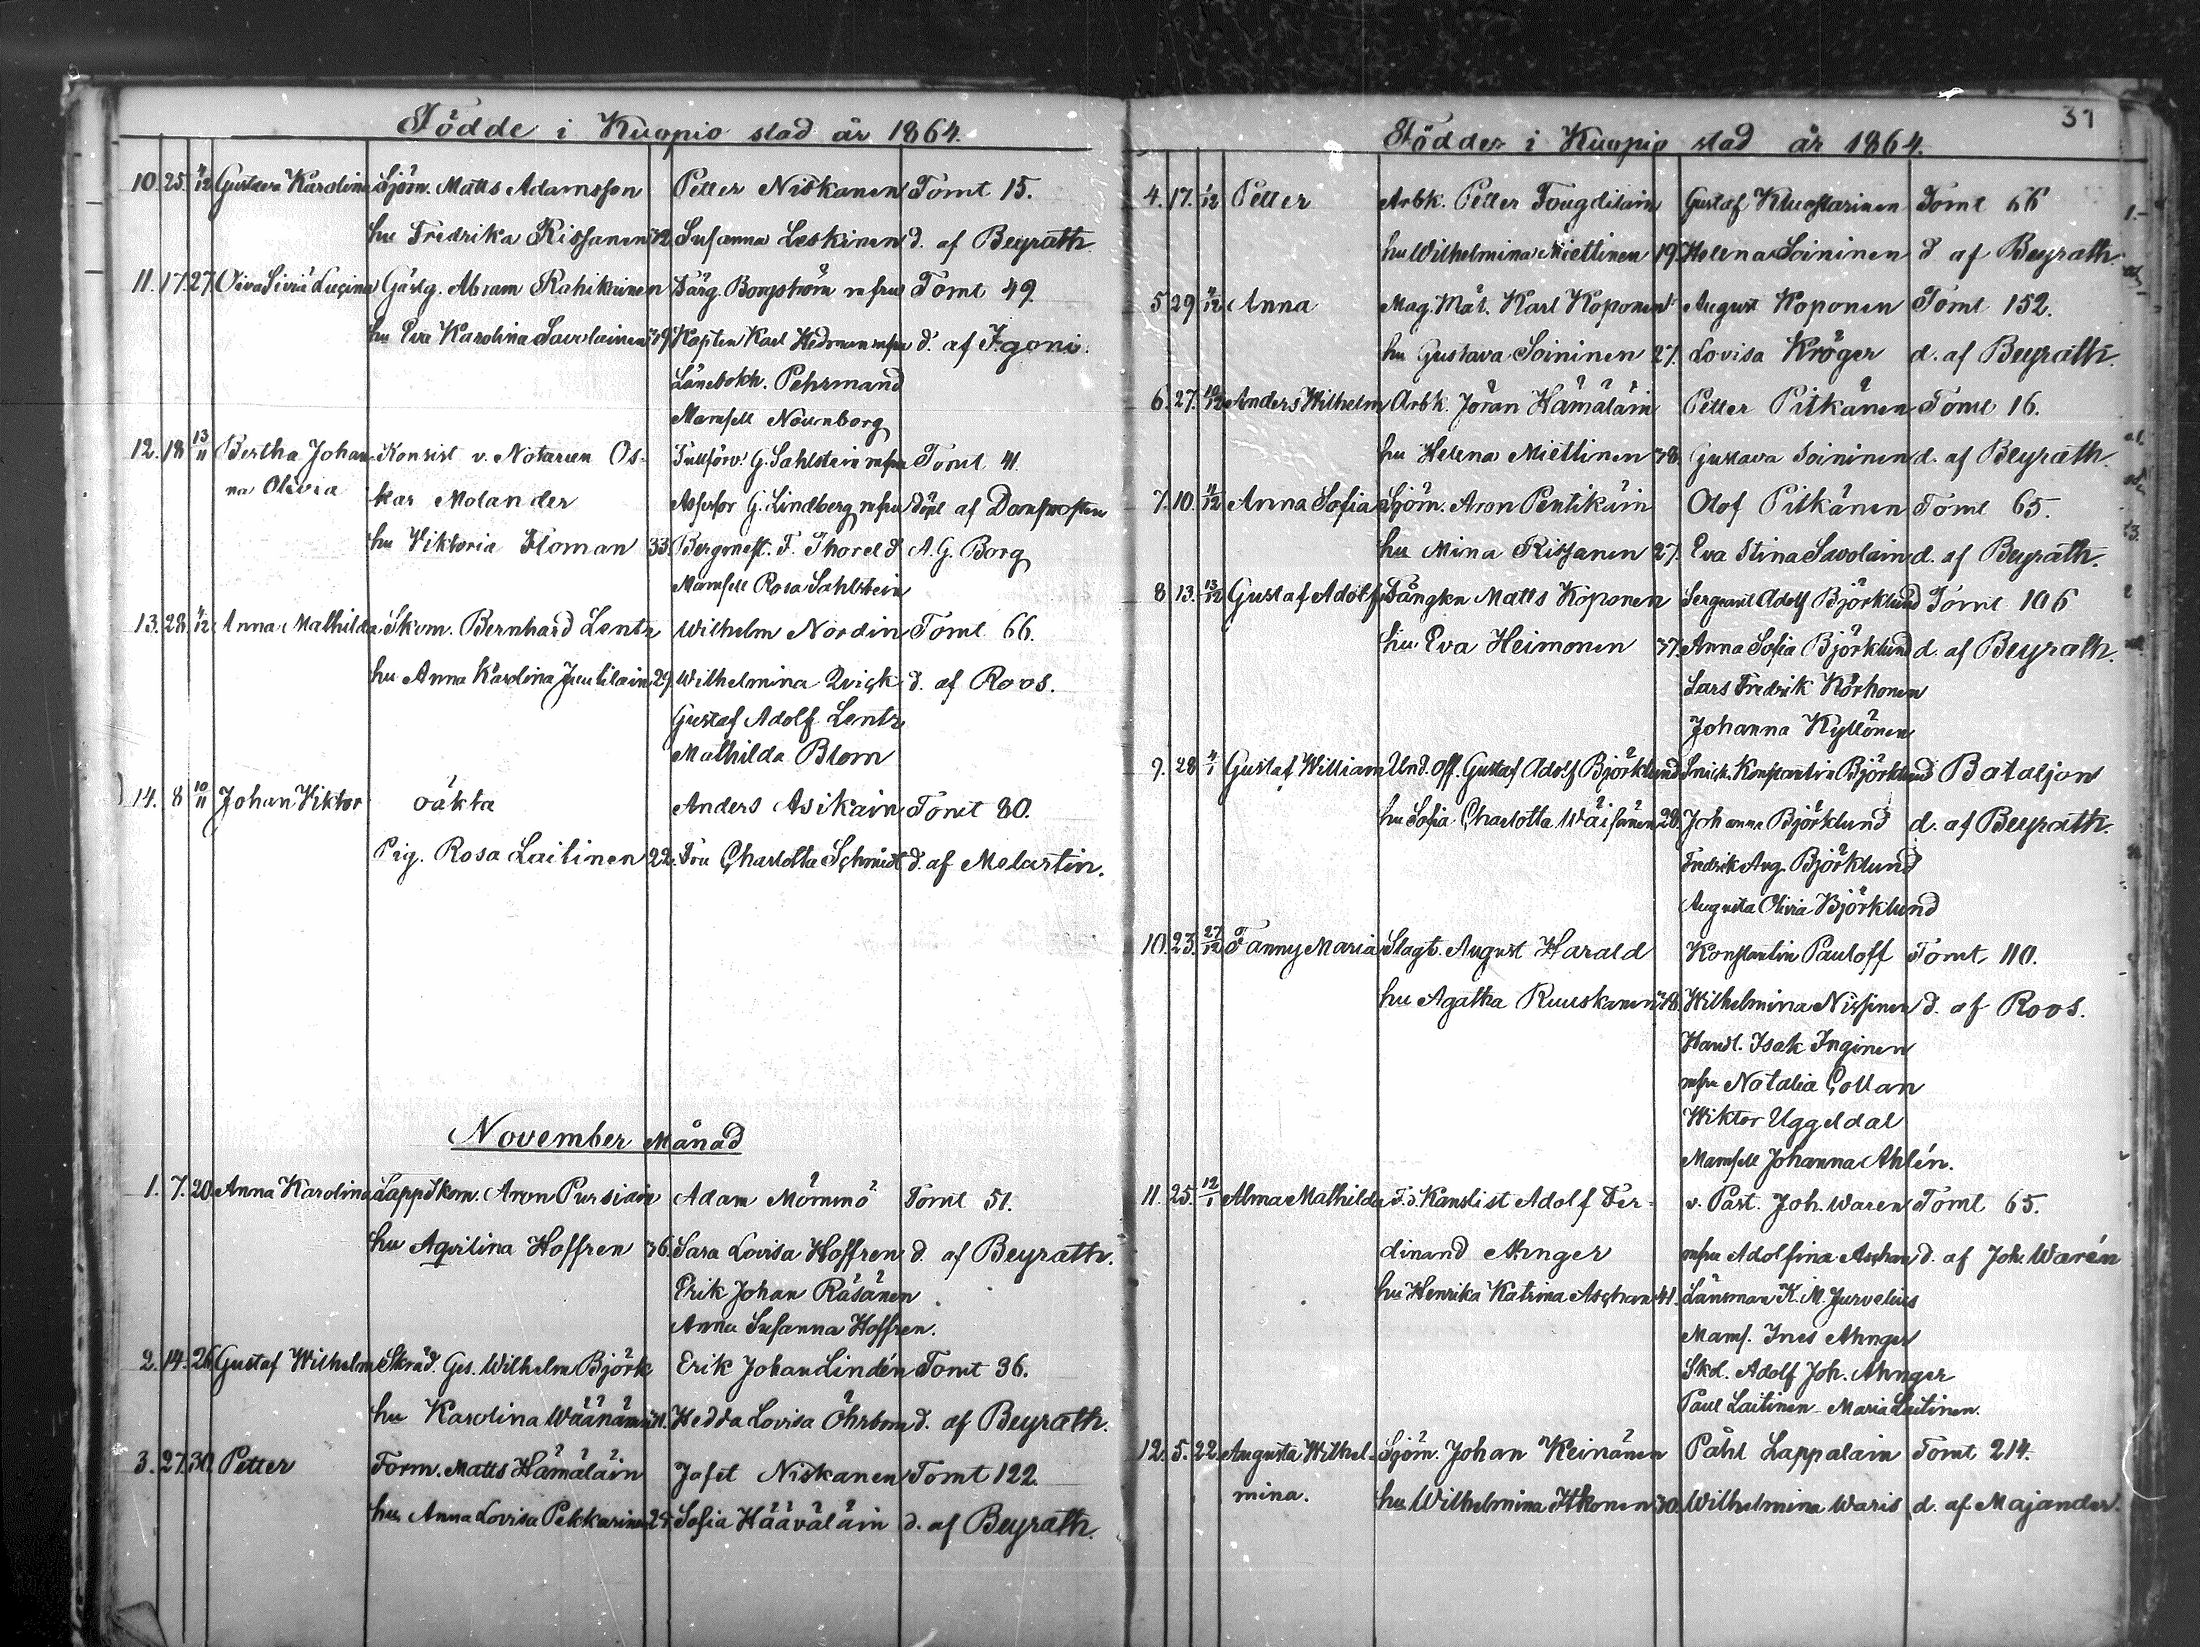 Födde i Kuopio stad år 1864.
10. 25. 4/12 Gustava Karolina Sjöm. Matts Adamsson Petter Niskanen Tomt 15.
hu Fredrika Rissanen 42. Susanna Leskinen d. af Beyrath
11. 17. 27. Oiva Siviä Lucina Gårdg. Abram Rahikainen Färg. Bongström m fru Tomt 49.
hu Eva Karolina Savolainen 39. Kapten Karl Hedman m fru d. af Igoni.
Länebokh. Pehrmand
Mamsell Nournborg
12. 18 13/11 Bertha Johan- Konsist v. Notarien Os- Tullförv. G. Sahlstein m fru Tomt 41.
na Olivia kar Molander Assessor G. Lindberg m fru döpt af Domprosten
hu Viktoria Floman 33. Bergmest. F. Thoreld A. G. Borg
Mamsell Rosa Sahlstein
13. 28. 4/12 Anna Mathilda Skom. Bernhard Lentz Wilhelm Nordin Tomt 66.
hu Anna Karolina Juutilain 29. Wilhelmina Qvick d. af Roos.
Gustaf Adolf Lentz
Mathilda Blom
14. 8 10/11 Johan Viktor oäkta Anders Asikain Tomt 80.
Pig. Rosa Laitinen 22. Fru Charlotta Schmidt d. af Melartin.
November Månad
1. 7. 20. Anna Karolina Lapp Skom. Aron Pursiain Adam Mömmö Tomt 51.
hu Aqvilina Hoffren 36. Sara Lovisa Hoffren d. af Beyrath.
Erik Johan Räsänen
Anna Susanna Hoffren.
2. 14. 26. Gustaf Wilhelm Skräd. Ges. Wilhelm Björk Erik Johan Lindén Tomt 36.
hu Karolina Wäänänen Hedda Lovisa Öhrbom d. af Beyrath.
3. 27. 30. Petter Form. Matts Hämäläin Jafet Niskanen Tomt 122.
hu Anna Lovisa Pekkarinen Sofia Häävälä in d. af Beyrath.
37
Föddes i Kuopio stad år 1864.
4. 17. 1/12 Petter Arbk. Petter Fougdilain Gustaf Kuostarinen Tomt 66
hu Wilhelmina Miettinen 19. Helena Soininen d af Beyrath.
5 29 4/12 Anna Mag. Mät. Karl Koponen August Koponen Tomt 152.
hu Gustava Soininen 27. Lovisa Kröger d. af Beyrath.
6. 27. Anders Wilhelm Arbk. Jöran Hämäläin Petter Pitkänen Tomt 16.
hu Helena Miettinen 38. Gustava Soininen d. af Beyrath.
7. 10. 11/12 Anna Sofia Sjöm. Aron Pentikäin Olof Pitkänen Tomt 65.
hu Mina Rissanen 27. Eva Stina Savolain d. af Beyrath.
8 13. 13/12 Gustaf Adolf Fångkn Matts Koponen Sergeant Adolf Björklund Tomt 106
hu Eva Heimonen 37. Anna Sofia Björklund d. af Beyrath.
Lars Fredrik Korhonen
Johanna Kyllönen
9. 28 4/1 Gustaf William Und. Off. Gustaf Adolf Björklund Snick. Konstantin Björklund Bataljon
hu Sofia Charlotta Wäisänen 28. Johanna Björklund d. af Beyrath.
Fredrik Aug. Björklund
Augusta Olivia Björklund
10. 23. 27/12 Fanny Maria Slagt. August Harald Konstantin Pauloff Tomt 110.
hu Agatha Ruuskanen 38. Wilhelmina Nissinen d. af Roos.
Handl. Isak Inginen
m fru Natalia Collan
Wiktor Uggeldal
Mamsell Johanna Ahlén.
11. 25. 12/1 Alma Mathilda F. d. Kanslist Adolf Fer- v. Past. Joh. Waren Tomt 65.
dinand Ahnger m fru Adolfina Aschan d. af Joh. Warén
hu Henrika Katrina Aschan 41. Länsman K. M. Jurvelius
Mams. Ines Ahnger
Skd. Adolf Joh. Ahnger
Paul Laitinen Maria Laitinen.
12. 5. 22. Augusta Wilhel- Sjöm. Johan Keinänen Påhl Lappalain Tomt 214.
mina. hu Wilhelmina Itkonen 30. Wilhelmina Waris d. af Majander.